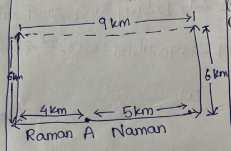 9 km
6km
6 km
4km
5km
Raman A Naman